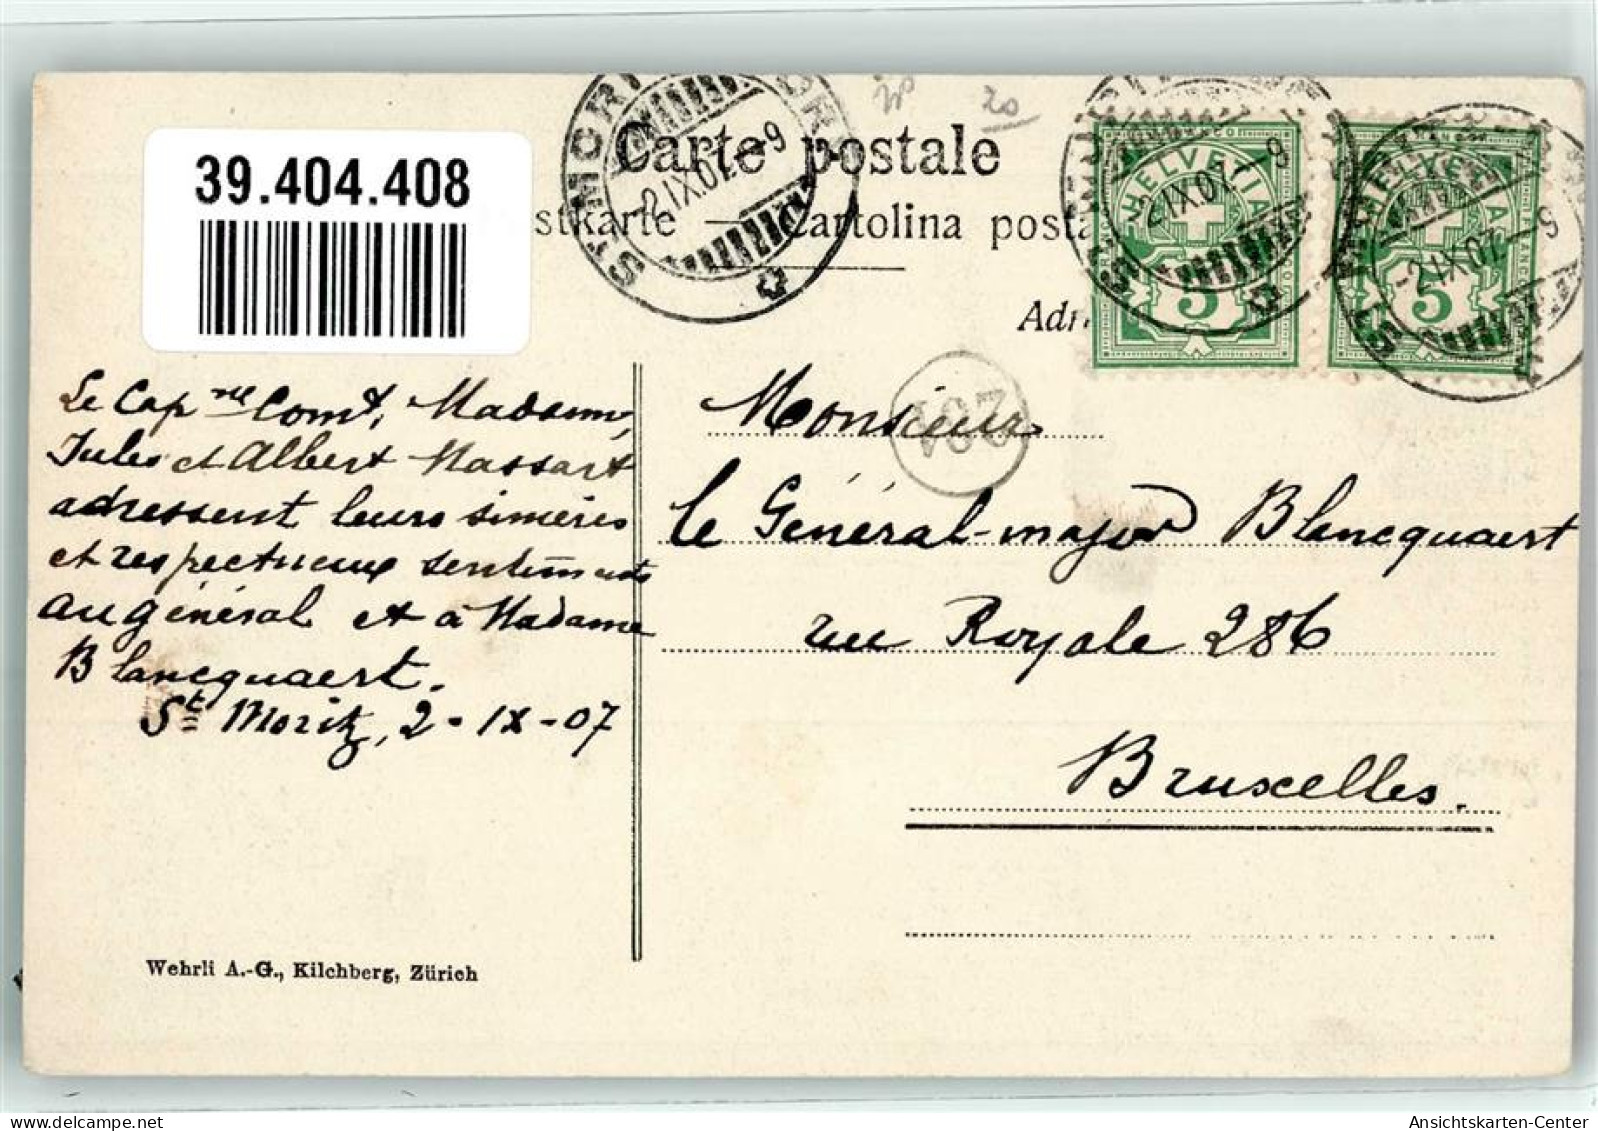 39.404.408
Carte postale
stkarte — Cartolina posta
ST. MORITZ
-2.IX.07.-9
HELVETIA
FRANCO
5
2.IX.07.-9
HELVETIA
FRANCO
5
-2.IX.07.-9
20
Adr
281
Le Cap ne Comt, Madame,
Jules et Albert Massart
adressent leurs sincères
et respectueux sentiments
au général et à Madame
Blancquaert.
St Moritz, 2-IX-07
Monsieur
le Général-major Blancquaert
rue Royale 286
Bruxelles.
Wehrli A.-G., Kilchberg, Zürich
Ansichtskarten-Center